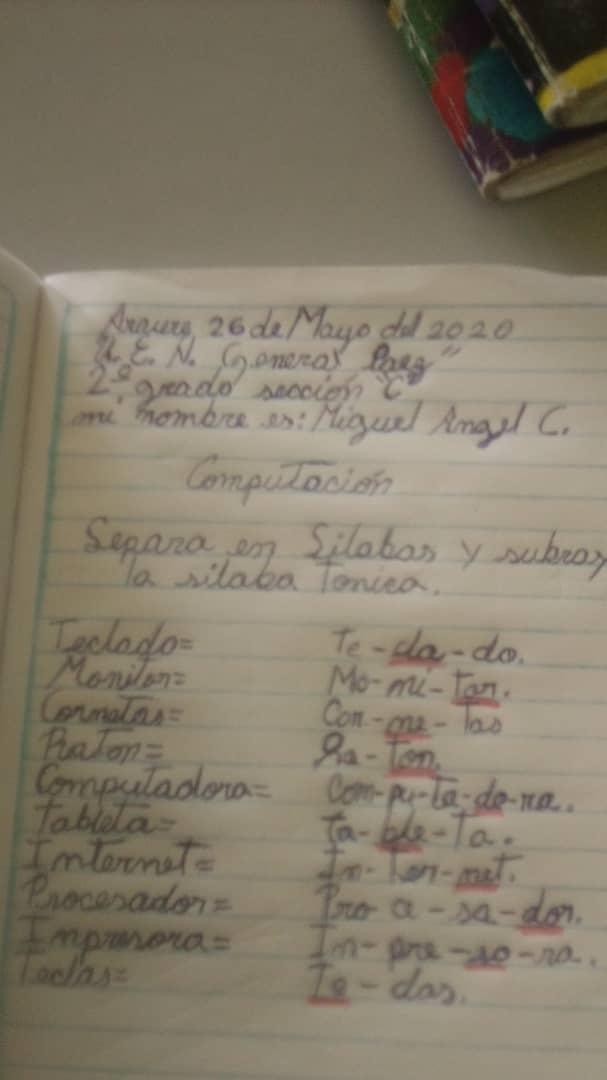 Araure 26 de Mayo del 2020
U. E. N. General Paez"
2º grado sección "C"
mi nombre es: Miguel Angel C.
Computación
Separa en Silabas y subray
la silaba Tonica.
Teclado= Te-cla-do.
Monitor= Mo-mi-tor.
Cornetas= Cor-ne-tas
Raton= Ra-ton.
Computadora= Com-pu-ta-do-ra.
Tableta= Ta-ble-Ta.
Internet= In-ter-net.
Procesador= Pro-a-sa-dor.
Impresora= Im-pre-so-ra.
Teclas= Te-clas.